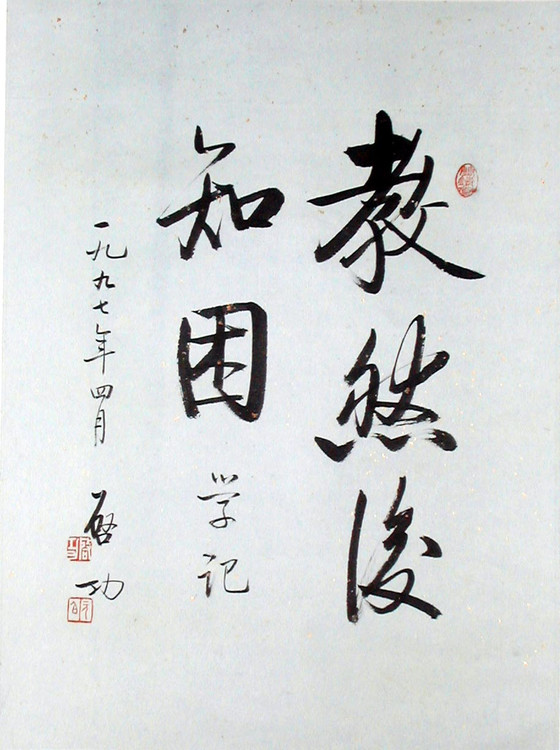 教然後
知困 学记
一九九七年四月 启功